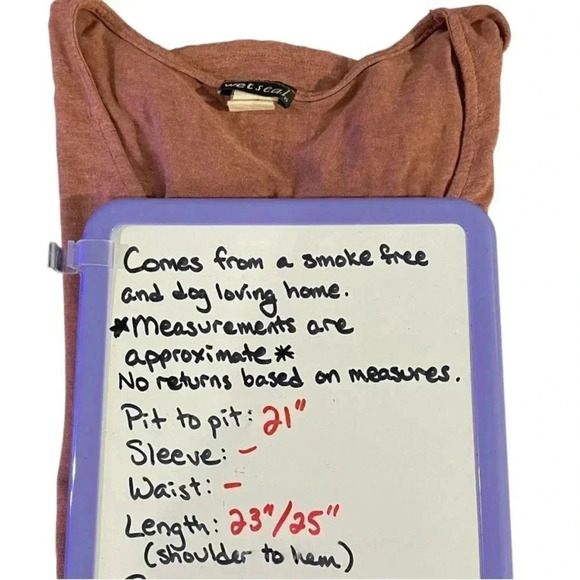 wet seal
Comes from a smoke free
and dog loving home.
*Measurements are
approximate*
No returns based on measures.
Pit to pit: 21"
Sleeve: -
Waist: -
Length: 23"/25"
(shoulder to hem)